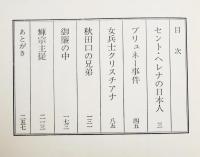 目次
セント・ヘレナの日本人 三
ブリュネー事件 四五
女兵士クリスチアナ 八五
秋田口の兄弟 一三一
御簾の中 一七一
輝宗主従 二一三
あとがき 二五七